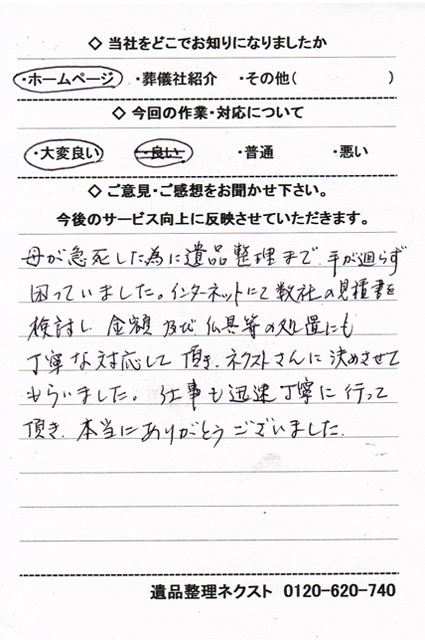 ◇ 当社をどこでお知りになりましたか
・ホームページ ・葬儀社紹介 ・その他( )
◇ 今回の作業・対応について
・大変良い ・良い ・普通 ・悪い
◇ ご意見・ご感想をお聞かせ下さい。
今後のサービス向上に反映させていただきます。
母が急死した為に遺品整理まで手が廻らず
困っていました。インターネットにて数社の見積書を
検討し金額及び仏具等の処置にも
丁寧な対応して頂き、ネクストさんに決めさせて
もらいました。仕事も迅速丁寧に行って
頂き、本当にありがとうございました。
遺品整理ネクスト 0120-620-740